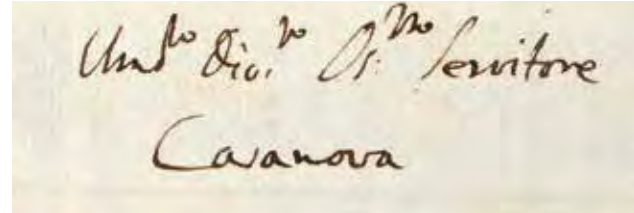 Um.to Div.to Os.mo Servitore
Casanova